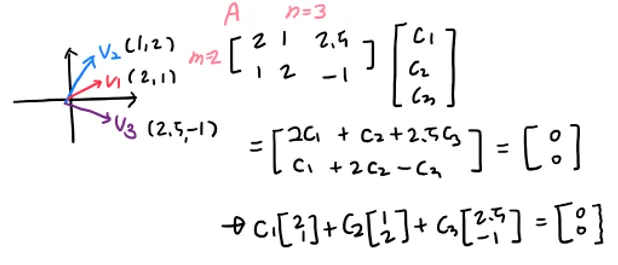 A n=3
V₂ (1,2)
V₁ (2,1)
V₃ (2.5,-1)
m=2 [2 1 2.5; 1 2 -1] [C₁; C₂; C₃]
= [2C₁ + C₂+2.5C₃; C₁ + 2C₂ - C₃] = [0; 0]
→ C₁[2; 1] + C₂[1; 2] + C₃[2.5; -1] = [0; 0]